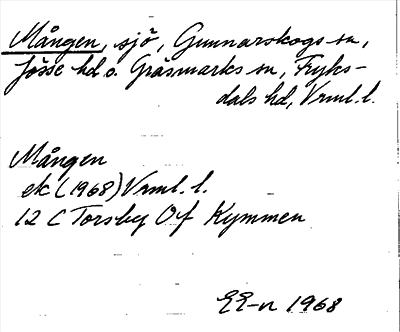 Mången, sjö, Gunnarskogs sn,
Jösse hd o. Gräsmarks sn, Fryks-
dals hd, Vrml. l.
Mången
ek (1968) Vrml. l.
12 C Torsby Of Kymmen
EE-n 1968